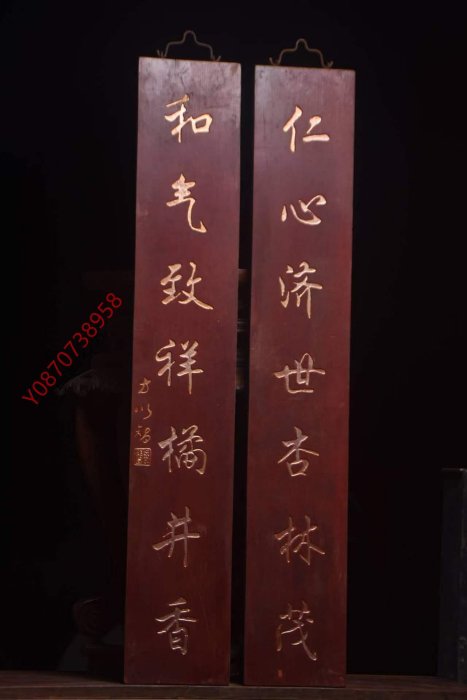 仁心济世杏林茂
和气致祥橘井香
方以智
Y0870738958